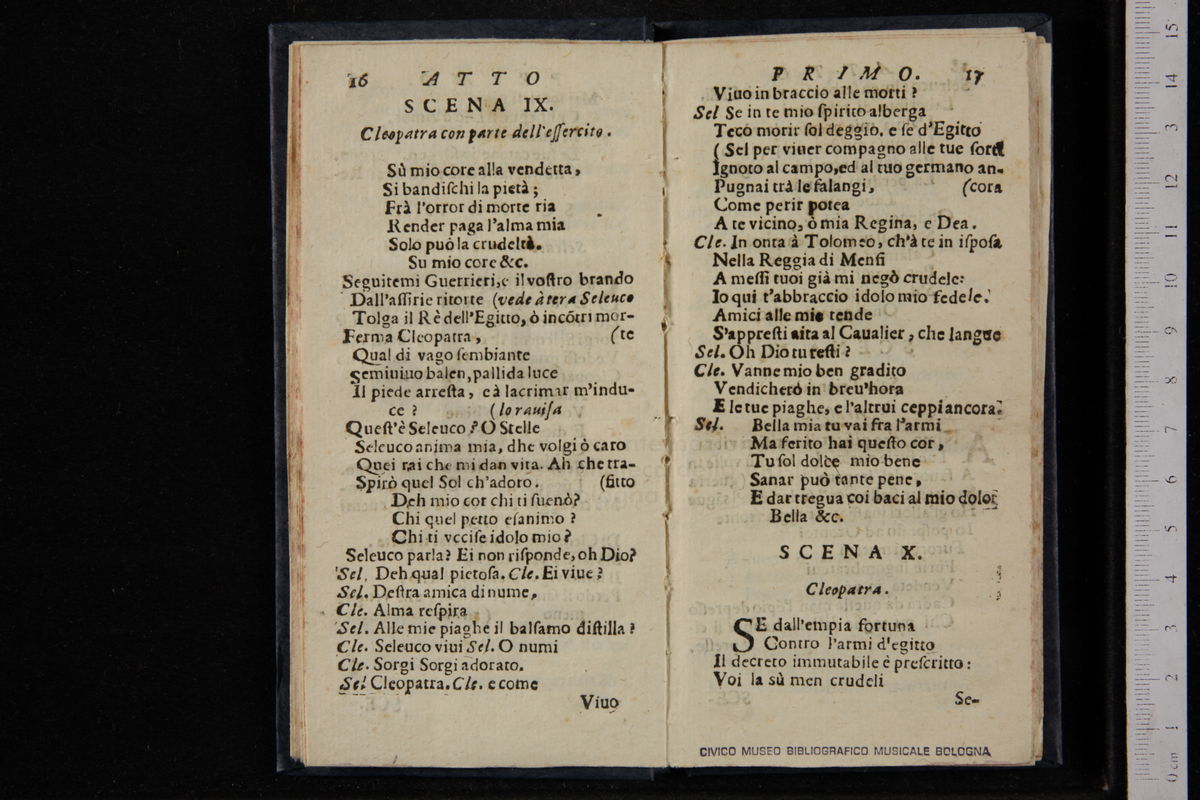 16 ATTO
SCENA IX.
Cleopatra con parte dell'eſſercito.
Sù mio core alla vendetta,
Si bandiſchi la pietà;
Frà l'orror di morte ria
Render paga l'alma mia
Solo può la crudeltà.
Su mio core &c.
Seguitemi Guerrieri, e il voſtro brando
Dall'aſſirie ritorte (vede à tera Seleuco
Tolga il Rè dell'Egitto, ò incõtri mor-
Ferma Cleopatra, (te
Qual di vago ſembiante
Semiuiuo balen, pallida luce
Il piede arreſta, e à lacrimar m'indu-
ce? (lo rauiſa
Queſt'è Seleuco? O Stelle
Seleuco anima mia, dhe volgi ò caro
Quei rai che mi dan vita. Ah che tra-
Spirò quel Sol ch'adoro. (fitto
Deh mio cor chi ti ſuenò?
Chi quel petto eſanimo?
Chi ti vcciſe idolo mio?
Seleuco parla? Ei non riſponde, oh Dio?
Sel. Deh qual pietoſa. Cle. Ei viue?
Sel. Deſtra amica di nume,
Cle. Alma reſpira
Sel. Alle mie piaghe il balſamo diſtilla?
Cle. Seleuco viui Sel. O numi
Cle. Sorgi Sorgi adorato.
Sel Cleopatra. Cle. e come
Viuo
PRIMO. 17
Viuo in braccio alle morti?
Sel Se in te mio ſpirito alberga
Teco morir ſol deggio, e ſe d'Egitto
(Sel per viuer compagno alle tue ſorti
Ignoto al campo, ed al tuo germano an-
Pugnai trà le falangi, (cora
Come perir potea
A te vicino, ò mia Regina, e Dea.
Cle. In onta à Tolomeo, ch'à te in iſpoſa
Nella Reggia di Menfi
A meſſi tuoi già mi negò crudele:
Io qui t'abbraccio idolo mio fedele.
Amici alle mie tende
S'appreſti aita al Caualier, che langue
Sel. Oh Dio tu reſti?
Cle. Vanne mio ben gradito
Vendicherò in breu'hora
E le tue piaghe, e l'altrui ceppi ancora.
Sel. Bella mia tu vai fra l'armi
Ma ferito hai queſto cor,
Tu ſol dolce mio bene
Sanar può tante pene,
E dar tregua coi baci al mio dolor
Bella &c.
SCENA X.
Cleopatra.
SE dall'empia fortuna
Contro l'armi d'egitto
Il decreto immutabile è preſcritto:
Voi la sù men crudeli
Se-
CIVICO MUSEO BIBLIOGRAFICO MUSICALE BOLOGNA
0 cm 1 2 3 4 5 6 7 8 9 10 11 12 13 14 15